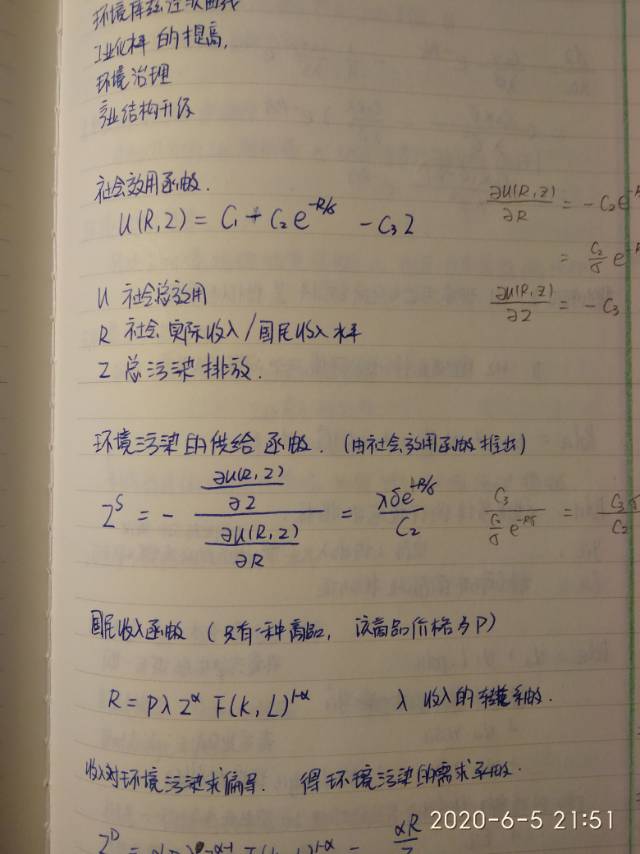 环境库兹涅次曲线
工业化水平的提高,
环境治理
产业结构升级
社会效用函数.
U(R,Z) = C₁ + C₂e^{-R/δ} - C₃Z
∂U(R,Z)/∂R = -C₂e^{-R
= C₂/δ e^{-R
U 社会总效用
∂U(R,Z)/∂Z = -C₃
R 社会实际收入/国民收入水平
Z 总污染排放.
环境污染的供给函数. (由社会效用函数推出)
Z^S = - (∂U(R,Z)/∂Z)/(∂U(R,Z)/∂R) = λδe^{+R/δ}/C₂
C₃/(C₂/δ e^{-R/δ}) = C₃δ/C₂
国民收入函数 (只有一种商品, 该商品价格为P)
R = PλZ^α F(K,L)^{1-α} λ 收入的转化系数.
收入对环境污染求偏导. 得环境污染的需求函数.
αR
2020-6-5 21:51